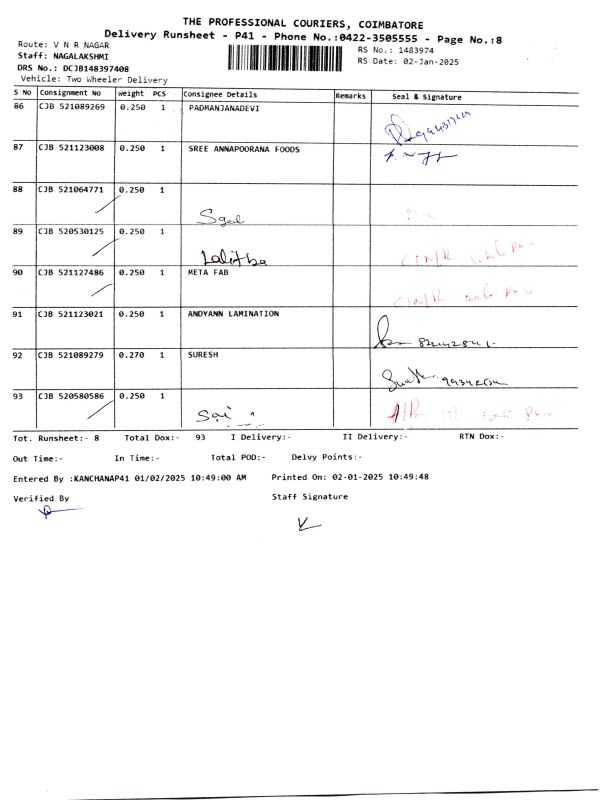 THE PROFESSIONAL COURIERS, COIMBATORE
Delivery Runsheet - P41 - Phone No.:0422-3505555 - Page No.:8
Route: V N R NAGAR
Staff: NAGALAKSHMI
DRS No.: DCJB148397408
Vehicle: Two Wheeler Delivery
RS No.: 1483974
RS Date: 02-Jan-2025
S No Consignment No Weight PCS Consignee Details Remarks Seal & Signature
86 CJB 521089269 0.250 1 PADMANJANADEVI
87 CJB 521123008 0.250 1 SREE ANNAPOORANA FOODS
88 CJB 521064771 0.250 1
89 CJB 520530125 0.250 1 Lalitha
90 CJB 521127486 0.250 1 META FAB
91 CJB 521123021 0.250 1 ANDYANN LAMINATION
92 CJB 521089279 0.270 1 SURESH
93 CJB 520580586 0.250 1 Sai
Tot. Runsheet:- 8 Total Dox:- 93 I Delivery:- II Delivery:- RTN Dox:-
Out Time:- In Time:- Total POD:- Delvy Points:-
Entered By :KANCHANAP41 01/02/2025 10:49:00 AM Printed On: 02-01-2025 10:49:48
Verified By Staff Signature